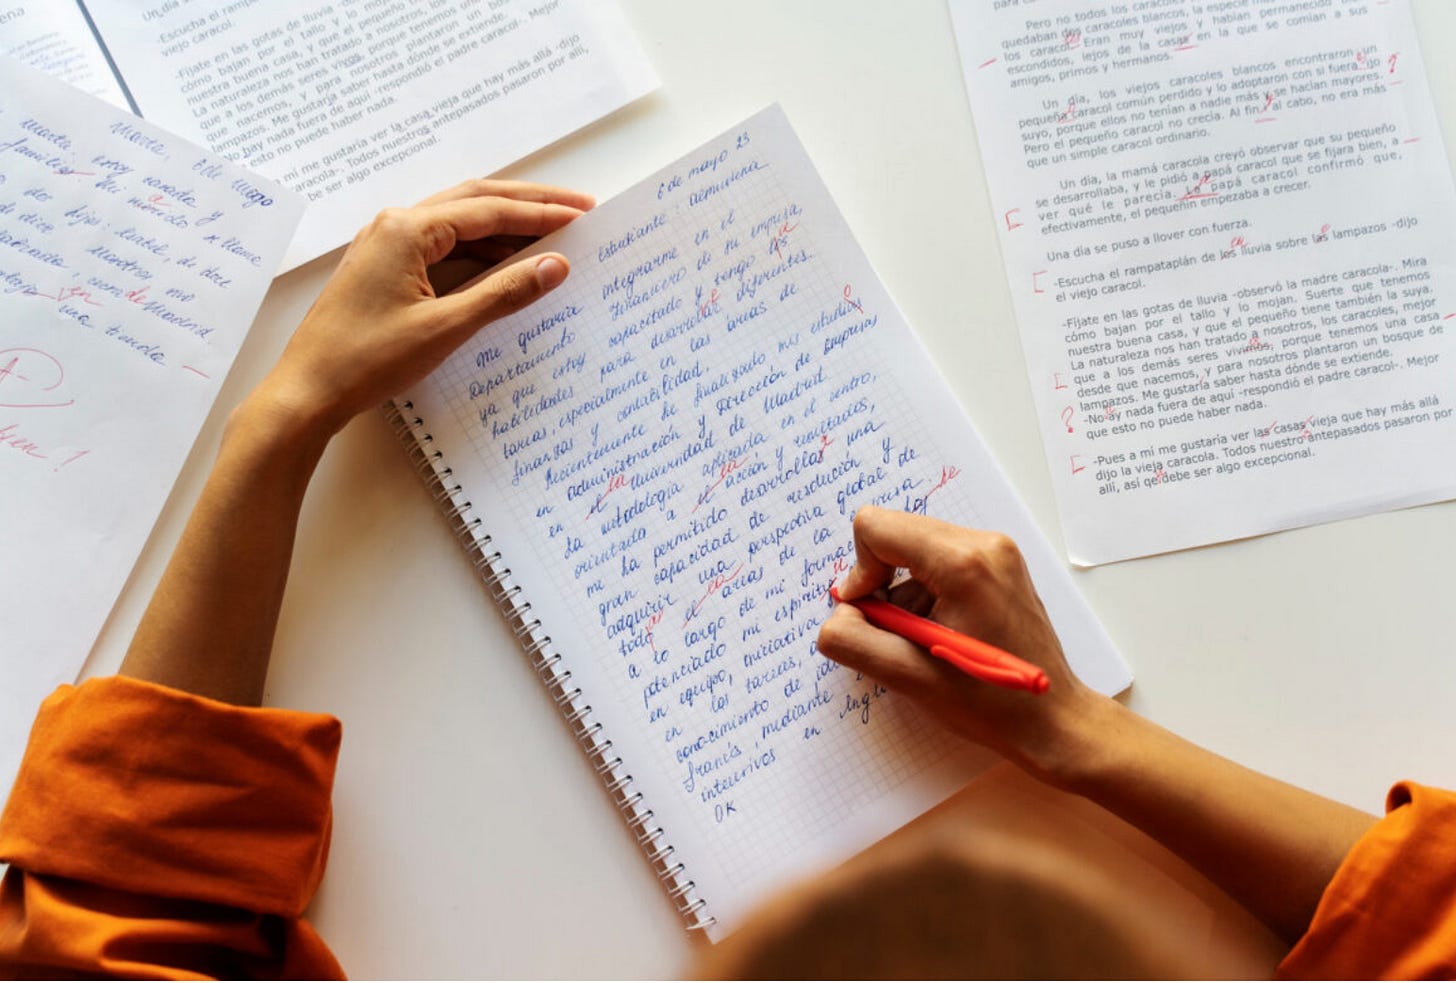 Marta, 6 de mayo
Marta estoy casada y
familia. Mi a marido
dos hijos: Isabel, de doce
nuestros
de Madrid
en
una tienda
A-
bien!
-Escucha el
viejo caracol.
-Fíjate en las gotas de lluvia
cómo bajan por el tallo y lo
nuestra buena casa, y que el pequeño
La naturaleza nos han tratado a nosotros, los
que a los demás seres vivos, porque tenemos una
que nacemos, y para nosotros plantaron un bosque
lampazos. Me gustaría saber hasta dónde se extiende.
-No hay nada fuera de aquí -respondió el padre caracol-. Mejor
esto no puede haber nada.
mí me gustaría ver la casa vieja que hay más allá -dijo
caracola-. Todos nuestros antepasados pasaron por allí,
be ser algo excepcional.
6 de mayo 23
Estudiante: Almudena
Me gustaría integrarme en el
Departamento Financiero de su empresa,
ya que estoy capacitado y tengo las
habilidades para desarrollar diferentes
tareas, especialmente en las áreas de
finanzas y contabilidad.
Recientemente he finalizado mis estudios
en administración y Dirección de Empresas
en el la Universidad de Madrid.
La metodología aplicada en el centro,
orientada a el la acción y resultados,
me ha permitido desarrollar una
gran capacidad de resolución y
adquirir una perspectiva global de
todo el las áreas de la empresa.
a lo largo de mi he
potenciado mi espíritu
en equipo, iniciativa
en las tareas,
conocimiento de
francés, mediante
intensivos en
OK
Pero no todos los caracoles
quedaban dos caracoles blancos, la especie más
los caracol. Eran muy viejos y habían permanecido
escondidos, lejos de la casas en la que se comían a sus
amigos, primos y hermanos.
Un día, los viejos caracoles blancos encontraron un
pequeña caracol común perdido y lo adoptaron con si fuera
suyo, porque ellos no tenían a nadie más y se hacían mayores.
Pero el pequeño caracol no crecía. Al fin y al cabo, no era más
que un simple caracol ordinario.
Un día, la mamá caracola creyó observar que su pequeño
se desarrollaba, y le pidió a papá caracol que se fijara bien, a
ver qué le parecía. papá caracol confirmó que,
efectivamente, el pequeñín empezaba a crecer.
Una día se puso a llover con fuerza.
-Escucha el rampataplán de los lluvia sobre las lampazos -dijo
el viejo caracol.
-Fíjate en las gotas de lluvia -observó la madre caracola-. Mira
cómo bajan por el tallo y lo mojan. Suerte que tenemos
nuestra buena casa, y que el pequeño tiene también la suya.
La naturaleza nos han tratado a nosotros, los caracoles, mejor
que a los demás seres porque tenemos una casa
desde que nacemos, y para nosotros plantaron un bosque de
lampazos. Me gustaría saber hasta dónde se extiende.
-No ay nada fuera de aquí -respondió el padre caracol-. Mejor
que esto no puede haber nada.
-Pues a mí me gustaría ver las casas vieja que hay más allá
dijo la vieja caracola. Todos nuestro antepasados pasaron por
allí, así debe ser algo excepcional.